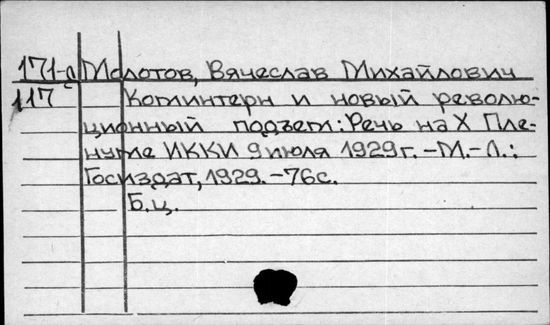 171-а Молотов, Вячеслав Михайлович
117 Коминтерн и новый револю-
ционный подъем: Речь на X Пле-
нуме ИККИ 9 июля 1929 г. - М.-Л.:
Госиздат, 1929. - 76 с.
Б.ц.